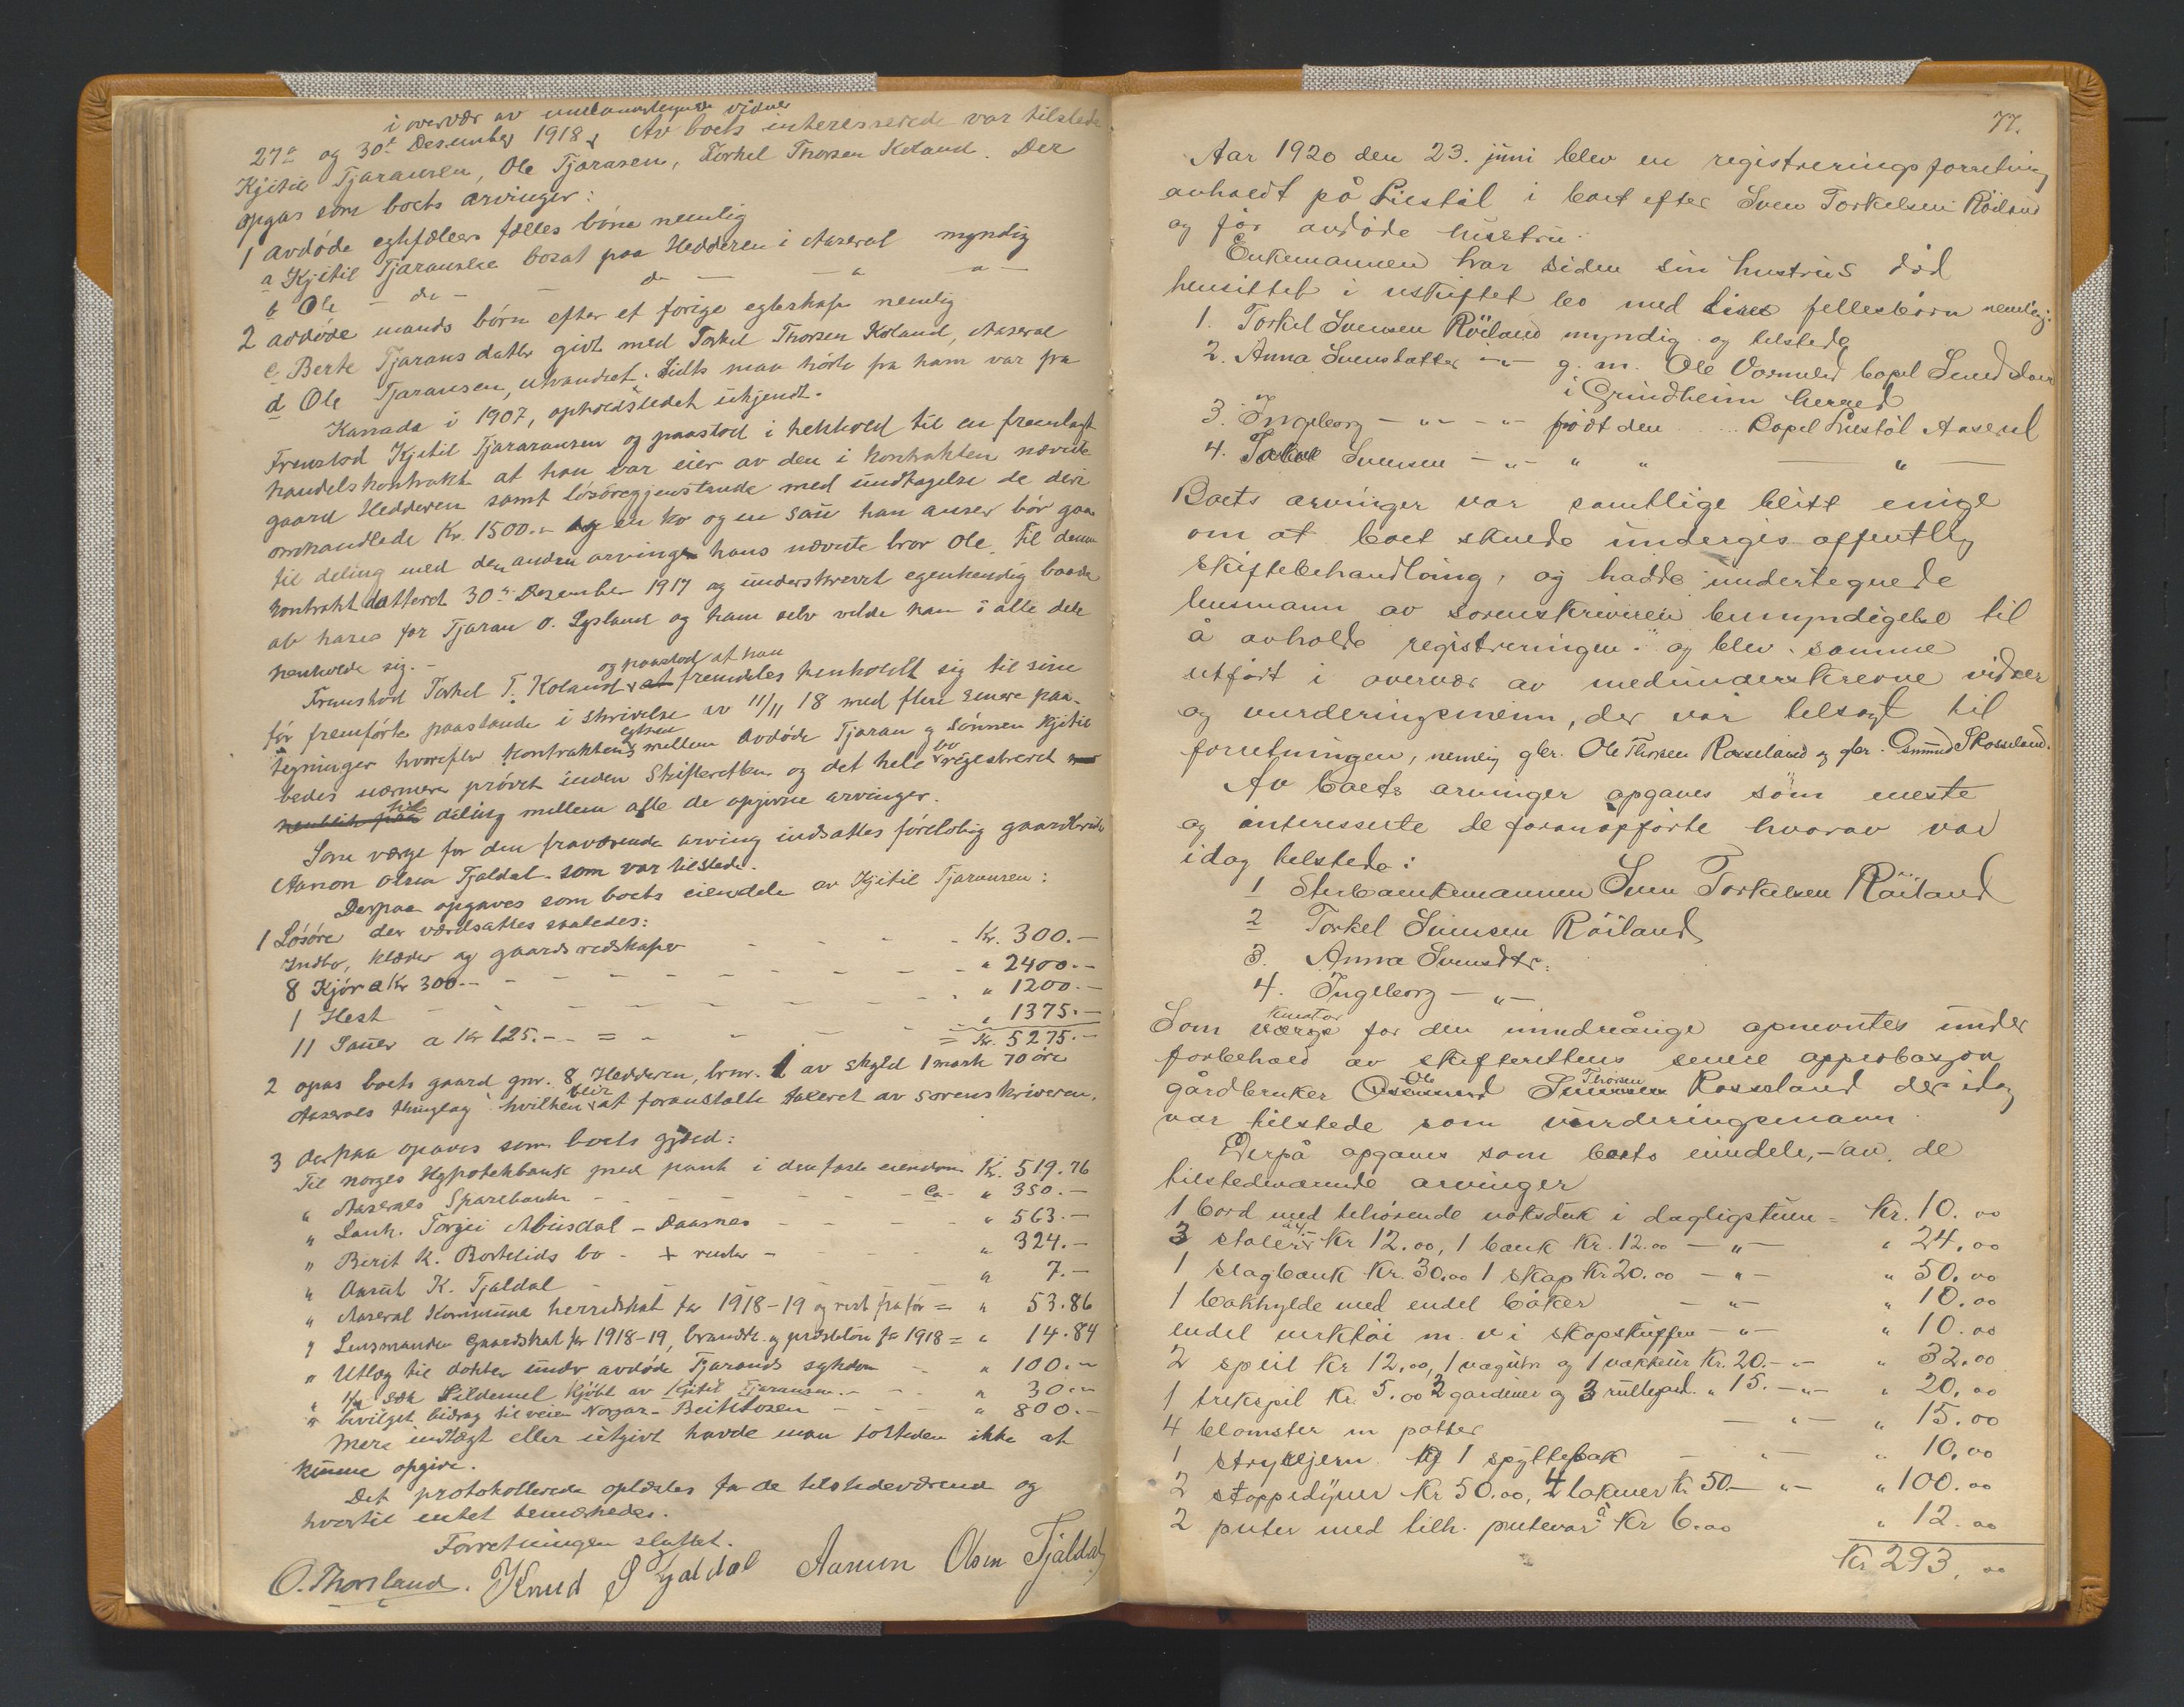 i overvær av undertegnede vidner
27de og 30te Desember 1918. Av boets interesserede var tilstede
Kjitil Tjaransen, Ole Tjaransen, Torkel Thorsen Koland. Der
opgas som boets arvinger:
1 Avdøde egtefællers fælles børn nemlig
a Kjitil Tjaransen bosat paa Hedderen i Aaseral myndig
b Ole - do - - do - - " - " -
2 avdøde mands børn efter et forige egteskap nemlig
c Berte Tjaransdatter givt med Torkel Thorsen Koland, Aaseral
d Ole Tjaransen, utvandret. Sidst man hørte fra ham var fra
Kanada i 1907, opholdsstedet ukjendt.
Fremstod Kjitil Tjararansen og paastod i henhold til en fremlagt
handelskontrakt at han var eier av den i kontrakten nævnte
gaard Hedderen samt løsøregjenstande med undtagelse de deri
omhandlede Kr. 1500.- og en ko og en sau han anser bør gaa
til deling med den anden arvinge hans nævnte bror Ole. Til denne
kontrakt datteret 30te Desember 1917 og underskrevet egenhendig baade
av hans far Tjaran O. Lysland og ham selv vilde han i alle dele
henholde sig. -
og paastod at han
Fremstod Torkel T. Koland at fremdeles henholdt sig til sine
før fremførte paastande i skrivelse av 11/11 18 med flere senere paa-
tegninger hvorefter kontrakten mellem avdøde Tjaran og sønnen Kjitil
bedes nærmere prøvet inden Skifteretten og det hele bo registreret
til deling mellem alle de opgivne arvinger.
Som værge for den fraværende arving indsattes foreløbig gaardbruker
Aanon Olsen Tjaldal. som var tilstede.
Derpaa opgaves som boets eiendele av Kjitil Tjaransen:
1 Løsøre der værdsattes saaledes:
Indbo, klæder og gaardsredskaper - - - - Kr. 300.-
8 Kjør a Kr 300.- - - - - - " 2400.-
1 Hest - - - - - - " 1200.-
11 Sauer a Kr 125.- - = - - - " 1375.-
= Kr. 5275.-
2 opgas boets gaard gnr. 8 Hedderen, brnr. 1 av skyld 1 mark 70 øre
Aaserals thinglag hvilken blir at foranstalte takseret av sorenskriveren.
3 derpaa opgaves som boets gjæld:
Til Norges Hypotekbank med pant i den faste eiendom Kr. 519.76
" Aaserals Sparebank - - - - - ca. " 350.-
" Lanh. Torgei Abusdal - Daasnes - - - " 563.-
" Berit K. Bortelids bo - + renter - - - " 324.-
" Aasut K. Tjaldal - - - - - " 7.-
" Aaseral Kommune herredskat for 1918-19 og rest fra før = " 53.86
" Lensmanden Gaardskat for 1918-19, brandk. og presteløn for 1918 = " 14.84
" Utlæg til doktor under avdøde Tjarands sykdom - " 100.-
" 1/2 sæk Sildemel kjøbt av Kjitil Tjaransen. - - - " 30.-
" bevilget bidrag til veien Norgar - Beitktosen - - - " 800.-
Mere indtægt eller utgivt havde man fortiden ikke at
kunne opgive.
Det protokollerede oplæstes for de tilstedeværende og
hvortil intet bemerkedes.
Forretningen sluttet.
O. Thorsland. Knud S Tjaldal Aanon Olsen Tjaldal
77.
Aar 1920 den 23. juni blev en registreringsforretning
avholdt på Liestøl i boet efter Sven Torkelsen Röiland
og før avdøde hustru.
Enkemannen har siden sin hustrus død
hensittet i uskiftet bo med sine fellesbörn nemlig:
1. Torkel Svensen Röiland myndig og tilstede
2. Anna Svensdatter -"- g. m. Ole Vormeli bopel
i Grindheim herred
3. Ingeborg - " - " - født den ... Bopel Liestöl Aaseral
4. Torkel Svensen - " - " " - " -
Boets arvinger var samtlige blitt enige
om at boet skulde undergis offentlig
skiftebehandling, og hadde undertegnede
lensmann av sorenskriveren bemyndigelse til
å avholde registreringen. og blev samme
utført i overvær av medunderskrevne vidner
og vurderingsmenn, der var tilsagt til
forretningen, nemlig gbr. Ole Thorsen Rosseland og gbr. Osmund Skosseland.
Av boets arvinger opgaves som eneste
og interesserte de foranopførte hvorav var
idag tilstede:
1 Sterboenkemannen Sven Torkelsen Röiland
2 Torkel Svensen Röiland
3. Anna Svensdtr.
4. Ingeborg - " -
kurator
Som værge for den mindreårige opnevntes under
forbehold av skifterettens senere approbasjon
Ole Thorsen
gårdbruker Osmund Svensen Rosseland der idag
var tilstede som vurderingsmann.
Derpå opgaves som boets eiendele, - av de
tilstedeværende arvinger
1 bord med tilhørende voksduk i dagligstuen = Kr. 10.00
3 stoler à 4.- Kr 12.00, 1 benk Kr. 12.00 - " - " 24.00
1 slagbenk Kr. 30.00 1 skap Kr 20.00 - " - " 50.00
1 bokhylde med endel bøker - " - " 10.00
endel verktøi m. v. i skapskuffen - " - " 10.00
2 speil Kr 12.00, 1 vægur og 1 vækkeur Kr. 20.- - " - " 32.00
1 trekspil Kr. 5.00 2 gardiner og 3 rullegard. " 15. - " - " 20.00
4 blomster m potter - " - " 15.00
1 strykejern og 1 spyttebak - " - " 10.00
2 stoppedyner Kr 50.00, 4 lakner Kr 50.- " - " 100.00
2 puter med tilh. putevar à Kr 6.00 " 12.00
Kr 293.00